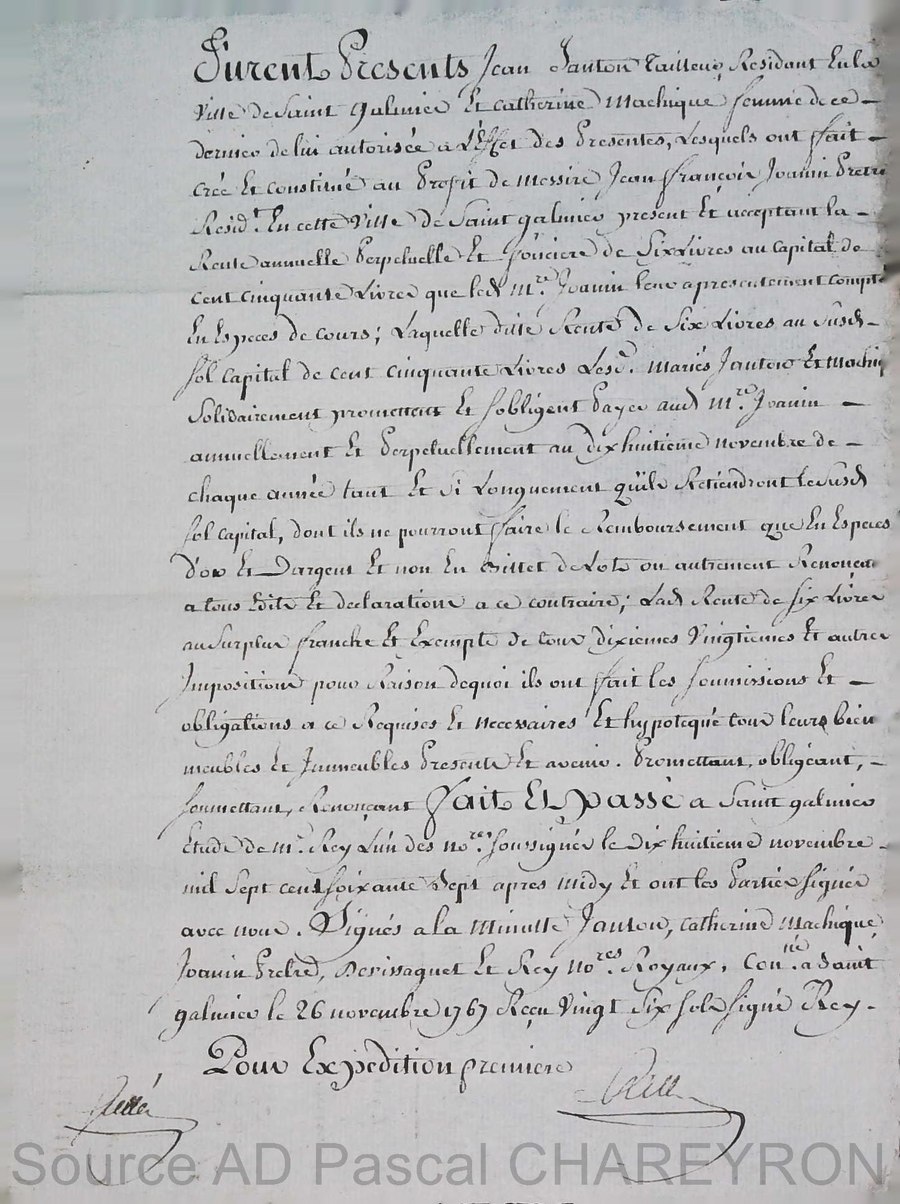 Furent Presents Jean Janton Tailleur Residant En la
Ville de Saint galmier Et catherine Machique femme de ce –
dernier de lui autorisée a L'Effet des Presentes, Lesquels ont fait –
créé Et constitué au Profit de Messire Jean françois Joanin Pretre
Resid.t En cette Ville de Saint galmier present Et acceptant la –
Rente annuelle Perpetuelle Et fonciere de Six Livres au capital de
cent cinquante Livres que led M.re Joanin leur a presentement compté
En Especes de cours; Laquelle ditte Rente de Six Livres au Susd –
sol capital de cent cinquante Livres Les.d Mariés Janton Et Machiq
Solidairement promettent Et s'obligent Payer aud M.re Joanin –
annuellement Et Perpetuellement au dix huitieme novembre de –
chaque année tant Et Si Longuement qu'ils Retiendront le Susd
sol capital, dont ils ne pourront faire le Remboursement que En Especes
D'or Et Dargent Et non En Billet de Lots ou autrement Renoncant
a tous Edits Et declarations a ce contraire; Lad Rente de six Livres
au Surplus franche Et Exempte de tous dixiemes Vingtiemes Et autres
Impositions pour Raison dequoi ils ont fait les soumissions Et –
obligations a ce Requises Et necessaires Et hypotequé tous leurs biens
meubles Et Immeubles Presents Et avenir. Promettant, obligeant, –
soumettant, Renonçant fait Et passé a Saint galmier
Etude de M.e Rey L'un des no.res soussignés le dix huitieme novembre –
mil Sept cent soixante Sept apres Midy Et ont les Parties signés
avec nous. Signés a la Minutte Janton, catherine Machique,
Joanin Pretre, Devissaguet Et Rey no.res Royaux, Con.né a Saint
galmier le 26 novembre 1767 Reçu Vingt Six sols signé Rey –
Pour Expedition premiere
Source AD Pascal CHAREYRON